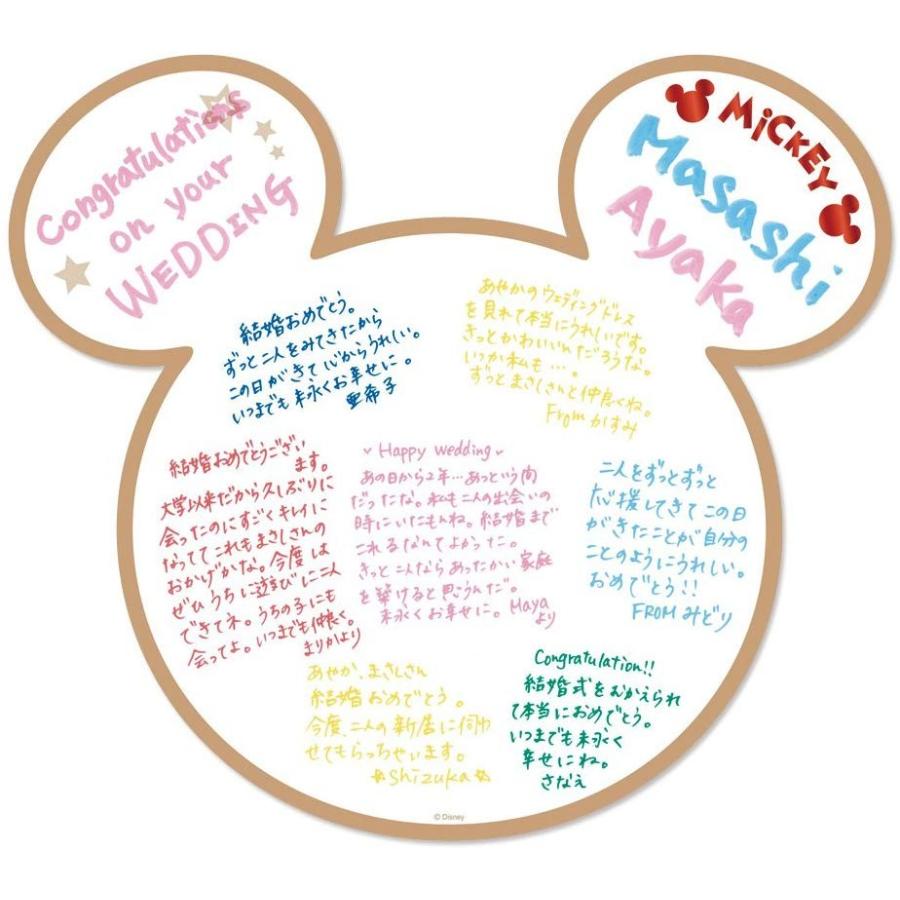 Congratulations
on your
WEDDING
MiCKEY
Masashi
Ayaka
結婚おめでとう。
ずっと二人をみてきたから
この日がきて心からうれしい。
いつまでも末永くお幸せに。
亜希子
あやかのウェディングドレス
を見れて本当にうれしいです。
きっとかわいいんだろうな。
いつか私も…。
ずっとまさしさんと仲良くね。
From かすみ
結婚おめでとうござい
ます。
大学以来だから久しぶりに
会ったのにすごくキレイに
なっててこれもまさしさんの
おかげかな。今度は
ぜひうちに遊びに二人
できてネ。うちの子にも
会ってよ。いつまでも仲良く。
まりかより
Happy wedding
あの日から2年…あっという間
だったな。私も二人の出会いの
時にいたもんね。結婚まで
これるなんてよかった。
きっと二人ならあったかい家庭
を築けると思うんだ。
末永くお幸せに。Maya
より
二人をずっとずっと
応援してきてこの日
がきたことが自分の
ことのようにうれしい。
おめでとう!!
FROMみどり
あやか、まさしさん
結婚おめでとう。
今度、二人の新居に伺わ
せてもらっちゃいます。
☆Shizuka☆
Congratulation!!
結婚式をむかえられ
て本当におめでとう。
いつまでも末永く
幸せにね。
さなえ
© Disney